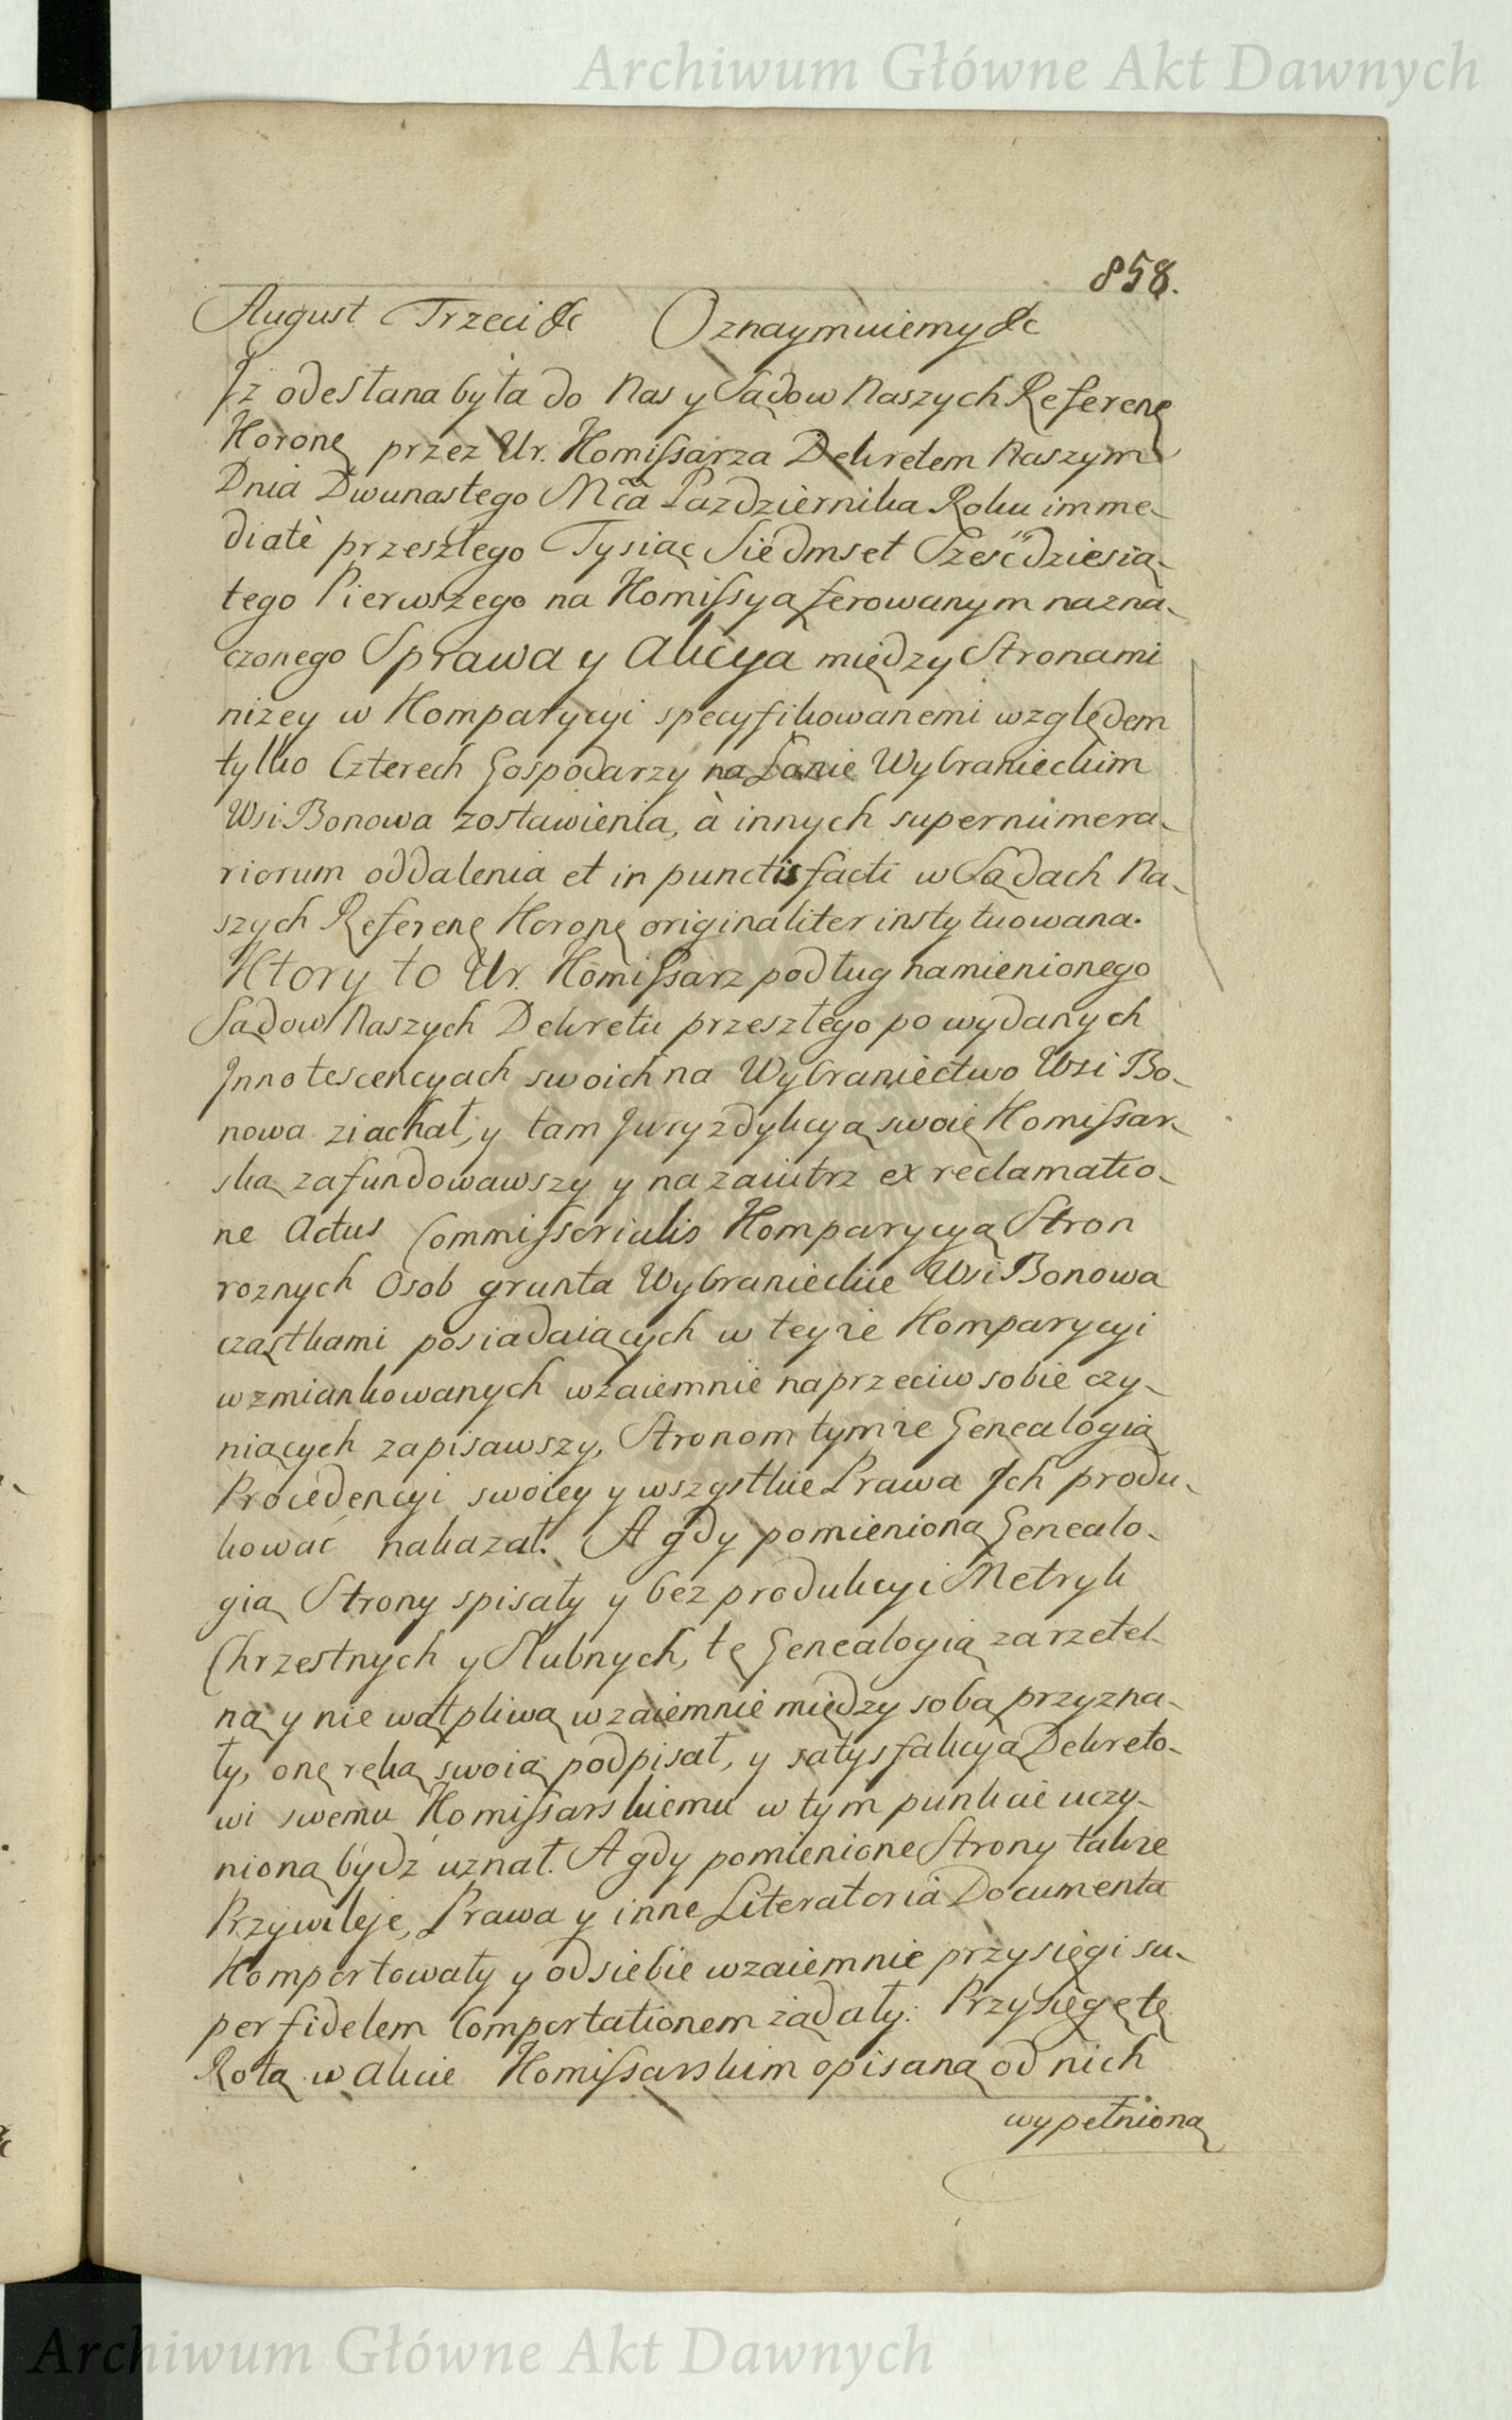 Archiwum Główne Akt Dawnych
858.
August Trzeci &c Oznaymuiemy &c
Jż odesłana była do Nas y Sądow Naszych Referenę
Koronę przez Ur. Komissarza Dekretem Naszym
Dnia Dwunastego Mca Pazdziernika Roku imme-
diatè przeszłego Tysiąc Siedmset Sześćdziesią-
tego Pierwszego na Komissyą ferowanym nazna-
czonego Sprawa y Akcya między Stronami
niżey w Komparycyi specyfikowanemi względem
tylko Czterech Gospodarzy na Łanie Wybranieckim
Wsi Bonowa zostawienia, à innych supernumera-
riorum oddalenia et in punctis facti w Sądach Na-
szych Referenę Koronę originaliter instytuowana.
Ktory to Ur. Komissarz podług namienionego
Sądow Naszych Dekretu przeszłego po wydanych
Jnnotescencyach swoich na Wybraniectwo Wsi Bo-
nowa ziachał, y tam Juryzdykcyą swoię Komissar-
ską zafundowawszy y nazaiutrz ex reclamatio-
ne Actus Commissorialis Komparycyą Stron
roznych Osob grunta Wybranieckie Wsi Bonowa
cząstkami posiadaiących w teyże Komparycyi
wzmiankowanych wzaiemnie naprzeciw sobie czy-
niących zapisawszy, Stronom tymże Genealogią
Procedencyi swoiey y wszystkie Prawa Jch produ-
kować nakazał. A gdy pomienioną Genealo-
gią Strony spisały y bez produkcyi Metryk
Chrzestnych y Slubnych, tę Genealogią za rzetel-
ną y nie wątpliwą wzaiemnie między sobą przyzna-
ły, onę ręką swoią podpisał, y satysfakcyą Dekreto-
wi swemu Komissarskiemu w tym punkcie uczy-
nioną bydz uznał. A gdy pomienione Strony także
Przywileje, Prawa y inne Literatoria Documenta
Komportowały y od siebie wzaiemnie przysięgi su-
per fidelem Comportationem żądały. Przysięgę tę
Rotą w Akcie Komissarskim opisaną od nich
wypełnioną
Archiwum Główne Akt Dawnych